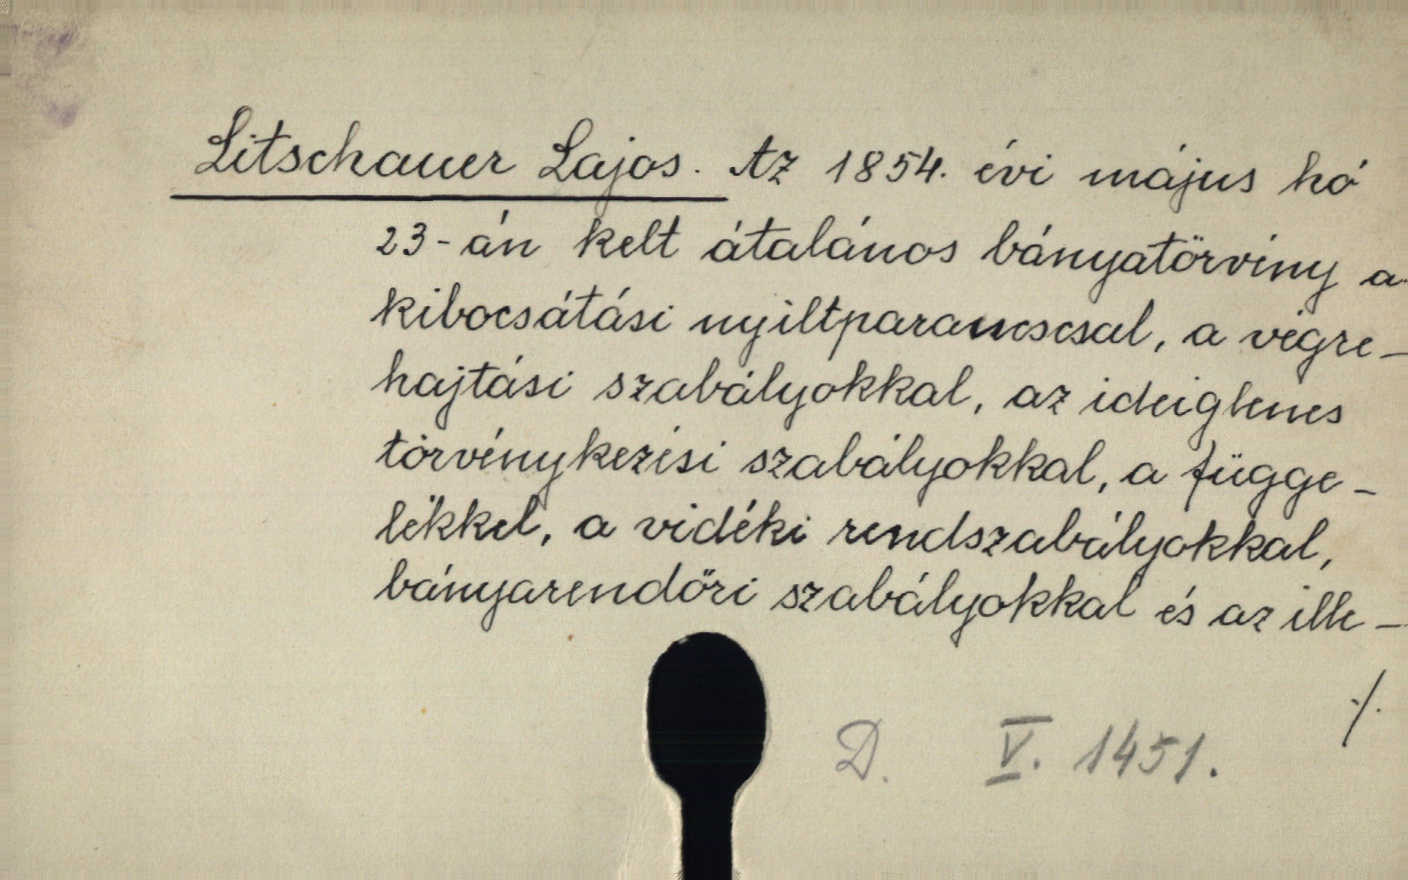 Litschauer Lajos. Az 1854. évi május hó
23-án kelt átalános bányatörvény a
kibocsátási nyiltparancscsal, a végre-
hajtási szabályokkal, az ideiglenes
törvénykezési szabályokkal, a függe-
lékkel, a vidéki rendszabályokkal,
bányarendőri szabályokkal és az ille-
./.
D. V. 1451.